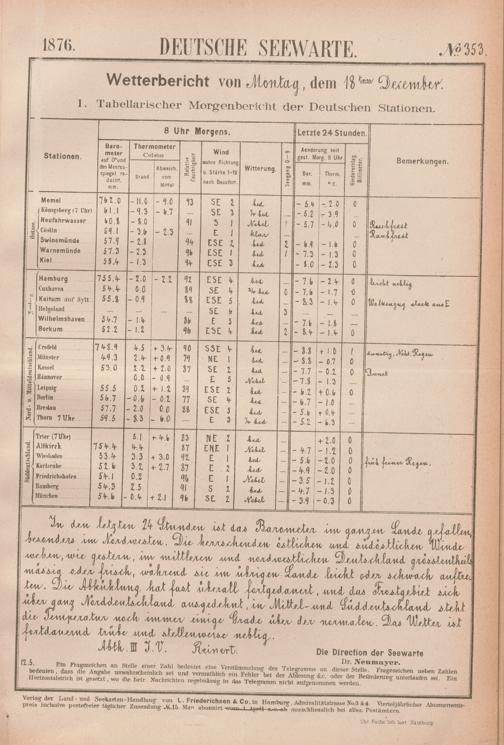 1876. DEUTSCHE SEEWARTE. No 353.
Wetterbericht von Montag, dem 18ten December.
1. Tabellarischer Morgenbericht der Deutschen Stationen.
8 Uhr Morgens. Letzte 24 Stunden.
Stationen. Barometer Thermometer Celsius Relative Feuchtigkeit Wind Witterung. Seegang 0-9 Niederschlag Bemerkungen.
Memel 762.0 -11.0 -9.0 93 SE 2 bed -5.4 -2.0 0
Königsberg (7 Uhr) 61.1 -9.3 SE 3 -5.2 -3.9
Neufahrwasser 60.8 -8.0 91 S 1 Nebel -5.7 -4.0 0 Rauhfrost
Cöslin -3.6 -2.3 E 1 klar Rauhfrost
Swinemünde 57.9 -2.8 ESE 2 bed 2
Warnemünde 57.3 -2.3 ESE 2 bed 1 -7.3 -1.3 0
Kiel -1.3 94 ESE 3 bed -8.0 -2.3 0
Hamburg 755.4 -2.0 -2.2 92 ESE 4 bed -7.6 -2.4 0 leicht neblig
Cuxhaven 54.4 0.0 89 SE 4 bed 0 -7.6 -1.7 0
Keitum auf Sylt 55.8 -0.9 88 ESE 5 bed -1.4 0 Wolkenzug stark aus E
Helgoland — SE 4 bed 3 —
Wilhelmshaven 54.7 -1.4 E 3 bed -7.6 -1.8
Borkum 52.2 -1.2 96 ESE 4 bed 2 -1.4 0
Crefeld 4.5 +3.4 90 SSE 4 bed +1.0 1
Münster 49.3 2.4 +0.9 79 NE 1 bed -0.7 0
Kassel 53.0 2.2 +2.0 87 SE 2 bed -7.7 -0.2 0 Dunst
Hannover 0.0 -0.9 E 5 Nebel -7.8 -1.3
Leipzig 55.5 0.2 +1.2 ESE 2 bed -6.2 +0.6 0
Berlin 56.7 -0.6 -0.2 77 SE 4 bed -1.0 0
Breslau 57.7 -2.0 0.0 88 ESE 3 bed +0.4
Thorn 7 Uhr 59.5 -6.0 E 3 -5.2 -6.3
Trier (7 Uhr) 5.1 +4.6 83 NE 2 bed +2.0 0
Altkirch 754.4 4.4 87 ENE 1 Nebel -4.7 -1.2 0
Wiesbaden 53.4 3.3 +3.0 92 E 1 bed -2.0 0
Karlsruhe 52.6 3.2 +2.7 87 E 2 bed -4.9 -2.0 0 früh feiner Regen.
Friedrichshafen 54.1 0.2 96 E 1 Nebel -3.5 -1.2 0
Bamberg 54.3 2.5 91 S 2 bed -4.7 -1.3 0
München 54.6 -0.4 +2.1 96 SE 2 Nebel -3.9 -0.3 0
In den letzten 24 Stunden ist das Barometer im ganzen Lande gefallen,
besonders im Nordwesten. Die herrschenden östlichen und südöstlichen Winde
wehen, wie gestern, im mittleren und nordwestlichen Deutschland grösstentheils
mässig oder frisch, während sie im übrigen Lande leicht oder schwach auftre-
ten. Die Abkühlung hat fast überall fortgedauert, und das Frostgebiet sich
über ganz Norddeutschland ausgedehnt, in Mittel- und Süddeutschland steht
die Temperatur noch immer einige Grade über der normalen. Das Wetter ist
fortdauernd trübe und stellenweise neblig.
Abth. III J.V. Reinert.
Die Direction der Seewarte
Dr. Neumayer.
12.5. Ein Fragezeichen an Stelle einer Zahl bedeutet eine Verstümmelung des Telegramms an dieser Stelle. Fragezeichen neben Zahlen
bedeuten, dass die Angabe unwahrscheinlich ist und vermuthlich ein Fehler bei der Ablesung &c. oder der Beförderung unterlaufen ist. Ein
Horizontalstrich ist gesetzt, wo die betr. Nachrichten regelmässig in das Telegramm nicht aufgenommen werden.
Verlag der Land- und Seekarten-Handlung von L. Friederichsen & Co. in Hamburg, Admiralitätstrasse No. 3 & 4. Vierteljährlicher Abonnements-
preis inclusive postfreier täglicher Zusendung Mk 15. Man abonnirt ausschliesslich bei allen Postämtern.